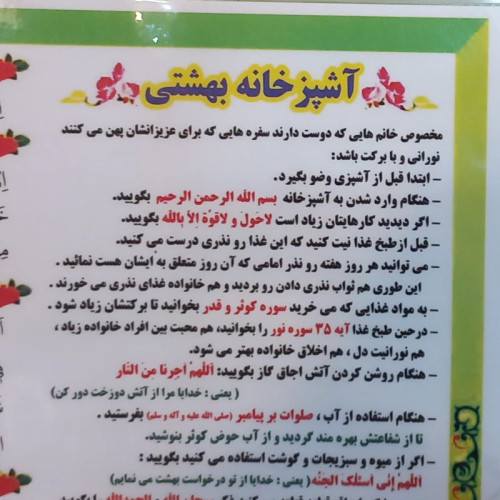 آشپزخانه بهشتی
مخصوص خانم هایی که دوست دارند سفره هایی که برای عزیزانشان پهن می کنند
نورانی و با برکت باشد:
- ابتدا قبل از آشپزی وضو بگیرد.
- هنگام وارد شدن به آشپزخانه بسم الله الرحمن الرحیم بگویید.
- اگر دیدید کارهایتان زیاد است لاحَولَ و لاقوّةَ اِلاّ بِالله بگویید.
- قبل ازطبخ غذا نیت کنید که این غذا رو نذری درست می کنید.
- می توانید هر روز هفته رو نذر امامی که آن روز متعلق به ایشان هست نمائید .
این طوری هم ثواب نذری دادن رو بردید و هم خانواده غذای نذری می خورند .
- به مواد غذایی که می خرید سوره کوثر و قدر بخوانید تا برکتشان زیاد شود .
- درحین طبخ غذا آیه ۳۵ سوره نور را بخوانید، هم محبت بین افراد خانواده زیاد ،
هم نورانیت دل ، هم اخلاق خانواده بهتر می شود.
- هنگام روشن کردن آتش اجاق گاز بگویید: اَللّهمْ اَجِرنا مِنَ النّار
( یعنی : خدایا مرا از آتش دوزخت دور کن)
- هنگام استفاده از آب ، صلوات بر پیامبر (صلی الله علیه و آله و سلم) بفرستید .
تا از شفاعتش بهره مند گردید و از آب حوض کوثر بنوشید.
- اگر از میوه و سبزیجات و گوشت استفاده می کنید بگویید :
اَللّهمْ اِنّی اَسئلُکَ الجَنّه ( یعنی : خدایا از تو درخواست بهشت می نمایم)